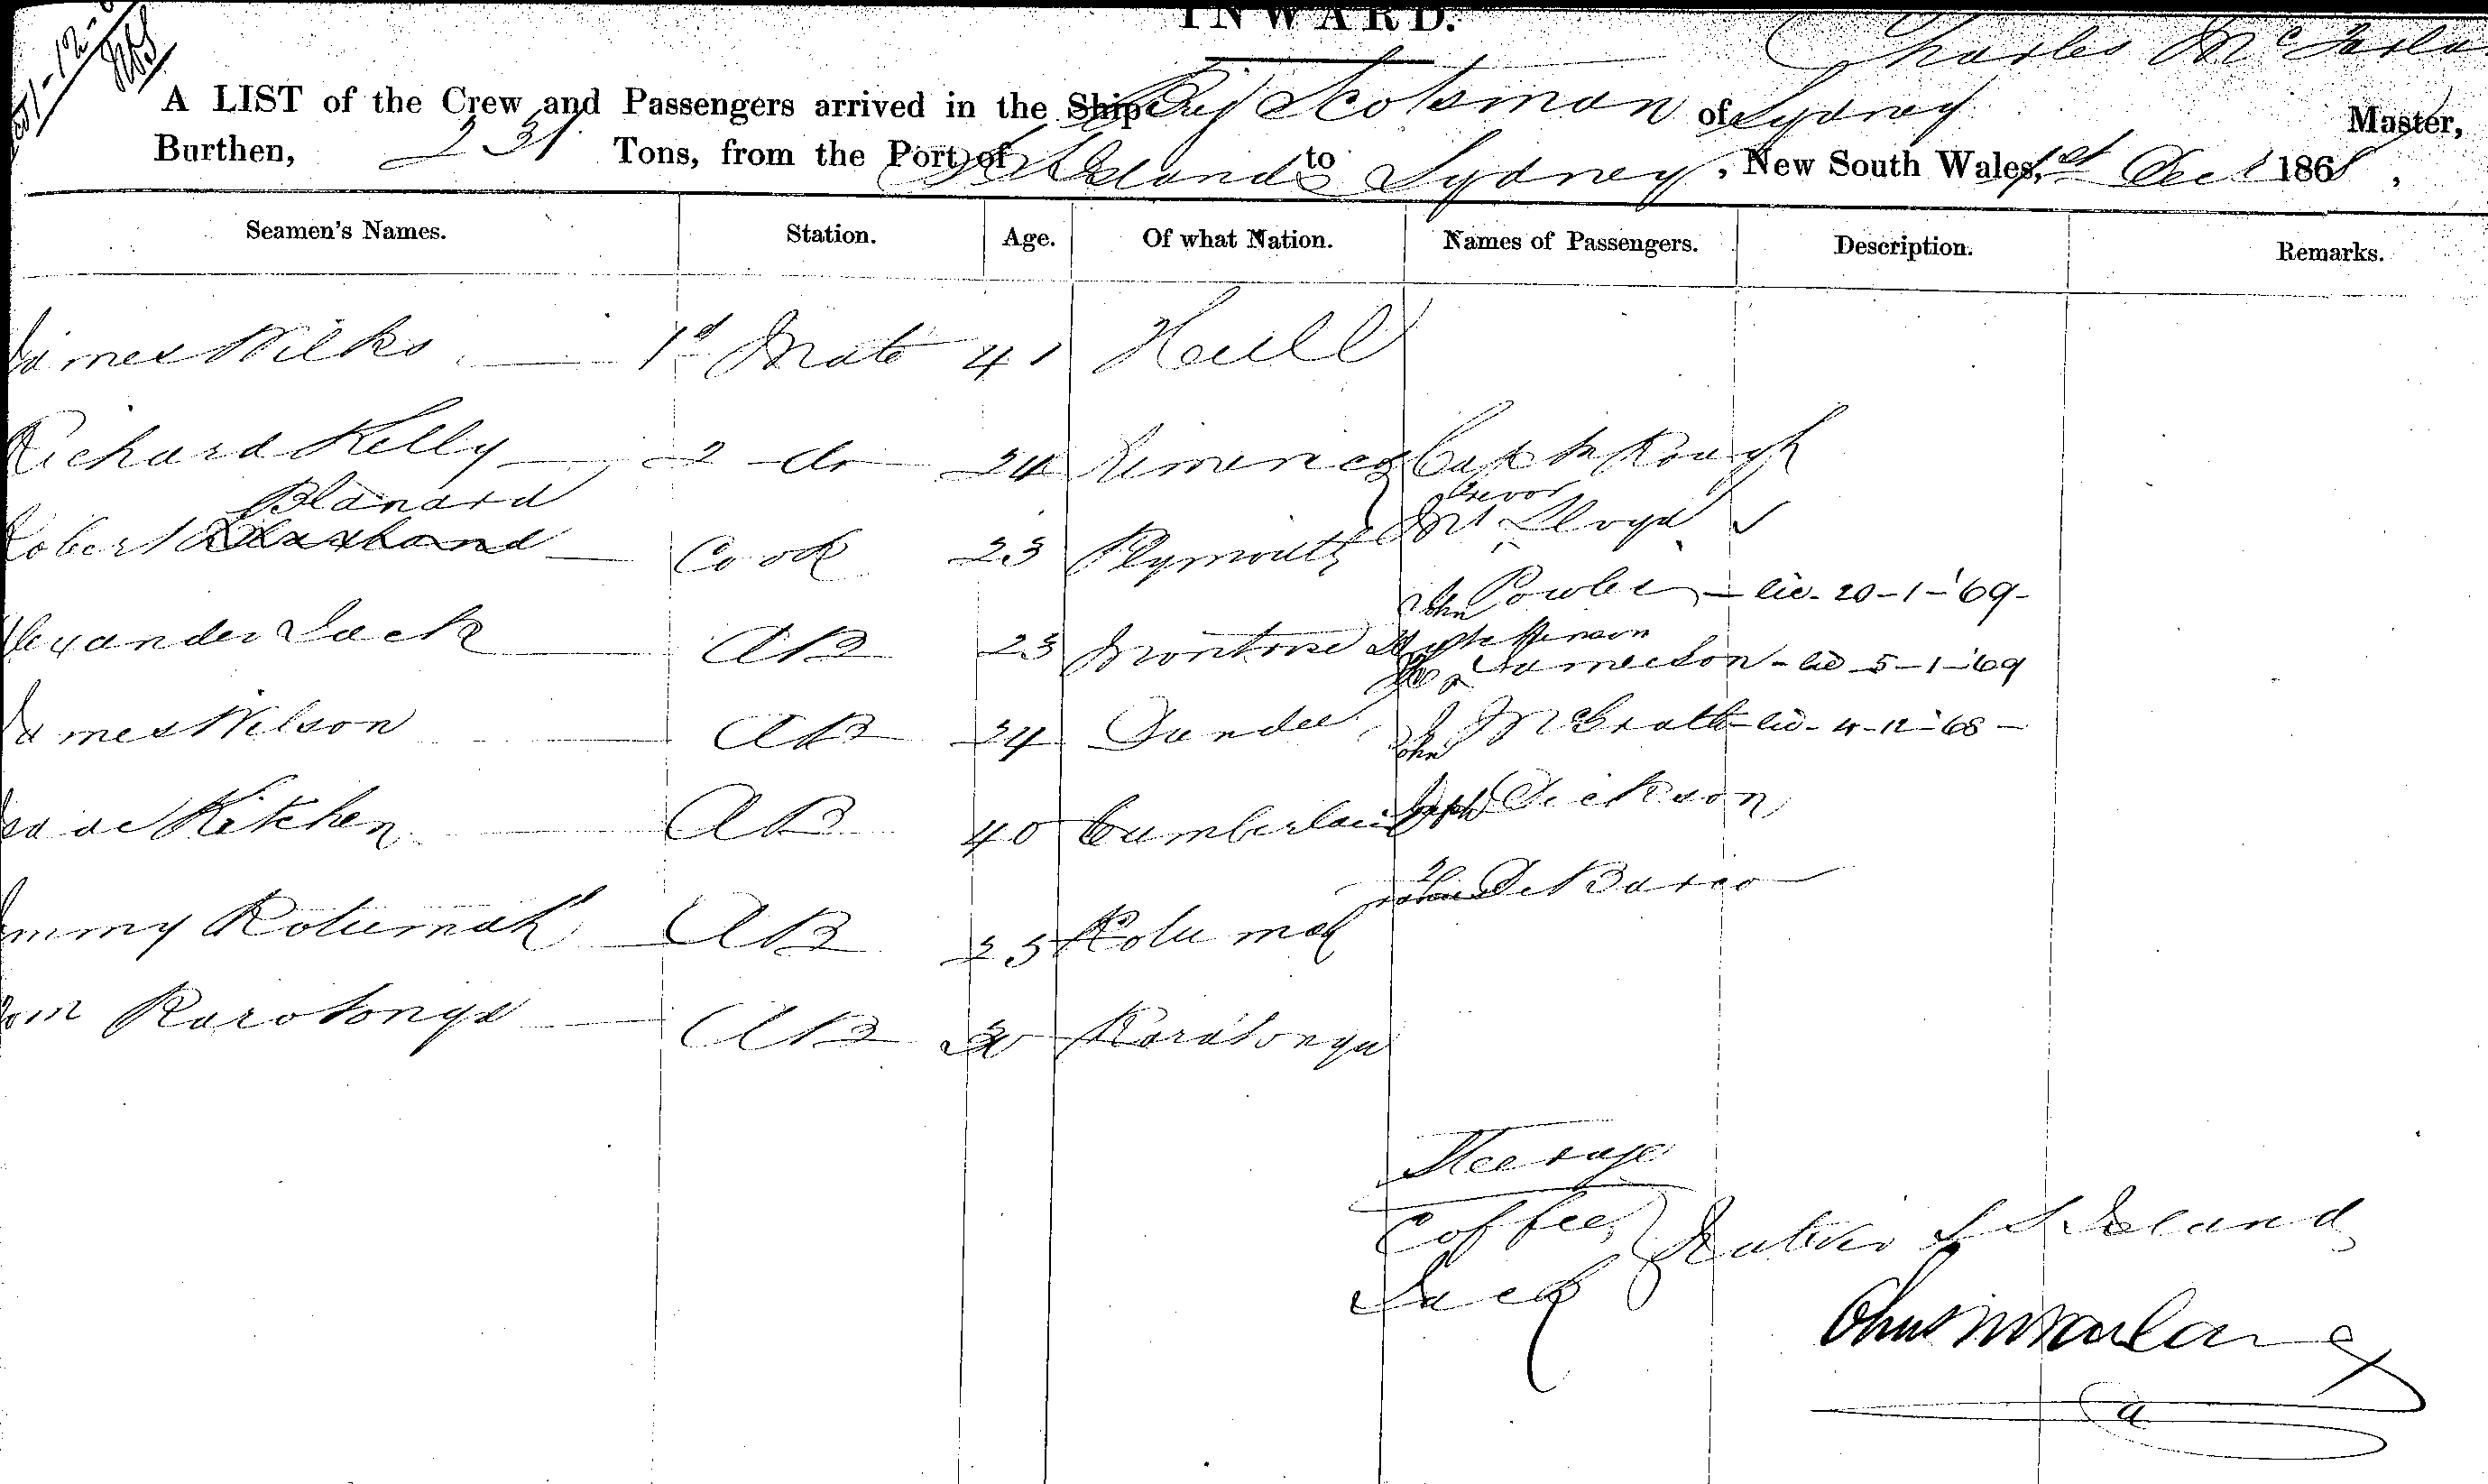 INWARD.
Charles McFarla
A LIST of the Crew and Passengers arrived in the Ship Brig Scotsman of Sydney Master,
Burthen, 231 Tons, from the Port of S S Islands to Sydney, New South Wales, 1st Dec 1868,
Seamen's Names. Station. Age. Of what Nation. Names of Passengers. Description. Remarks.
James Wilks 1st Mate 41 Hull
Richard Kelly 2 do 24 Limerick Captn Rough
Blanard Trevor
Robert Cook 23 Plymouth Mr Lloyd
John Powler - lic. 20-1-'69-
Alexander Jack AB 23 Montrose
Jameeson - lic 5-1-'69
James Wilson AB 24 Dundee John McGrath - lic - 4-12-'68-
Isaac Kitchen AB 40 Cumberland Joseph Dickson
De Barco
Jimmy Rotumah AB 25 Rotumah
Tom Rarotonga AB 30 Rarotonga
Steerage
Coffee Natives S S Islands
Jack
Chas McFarlane